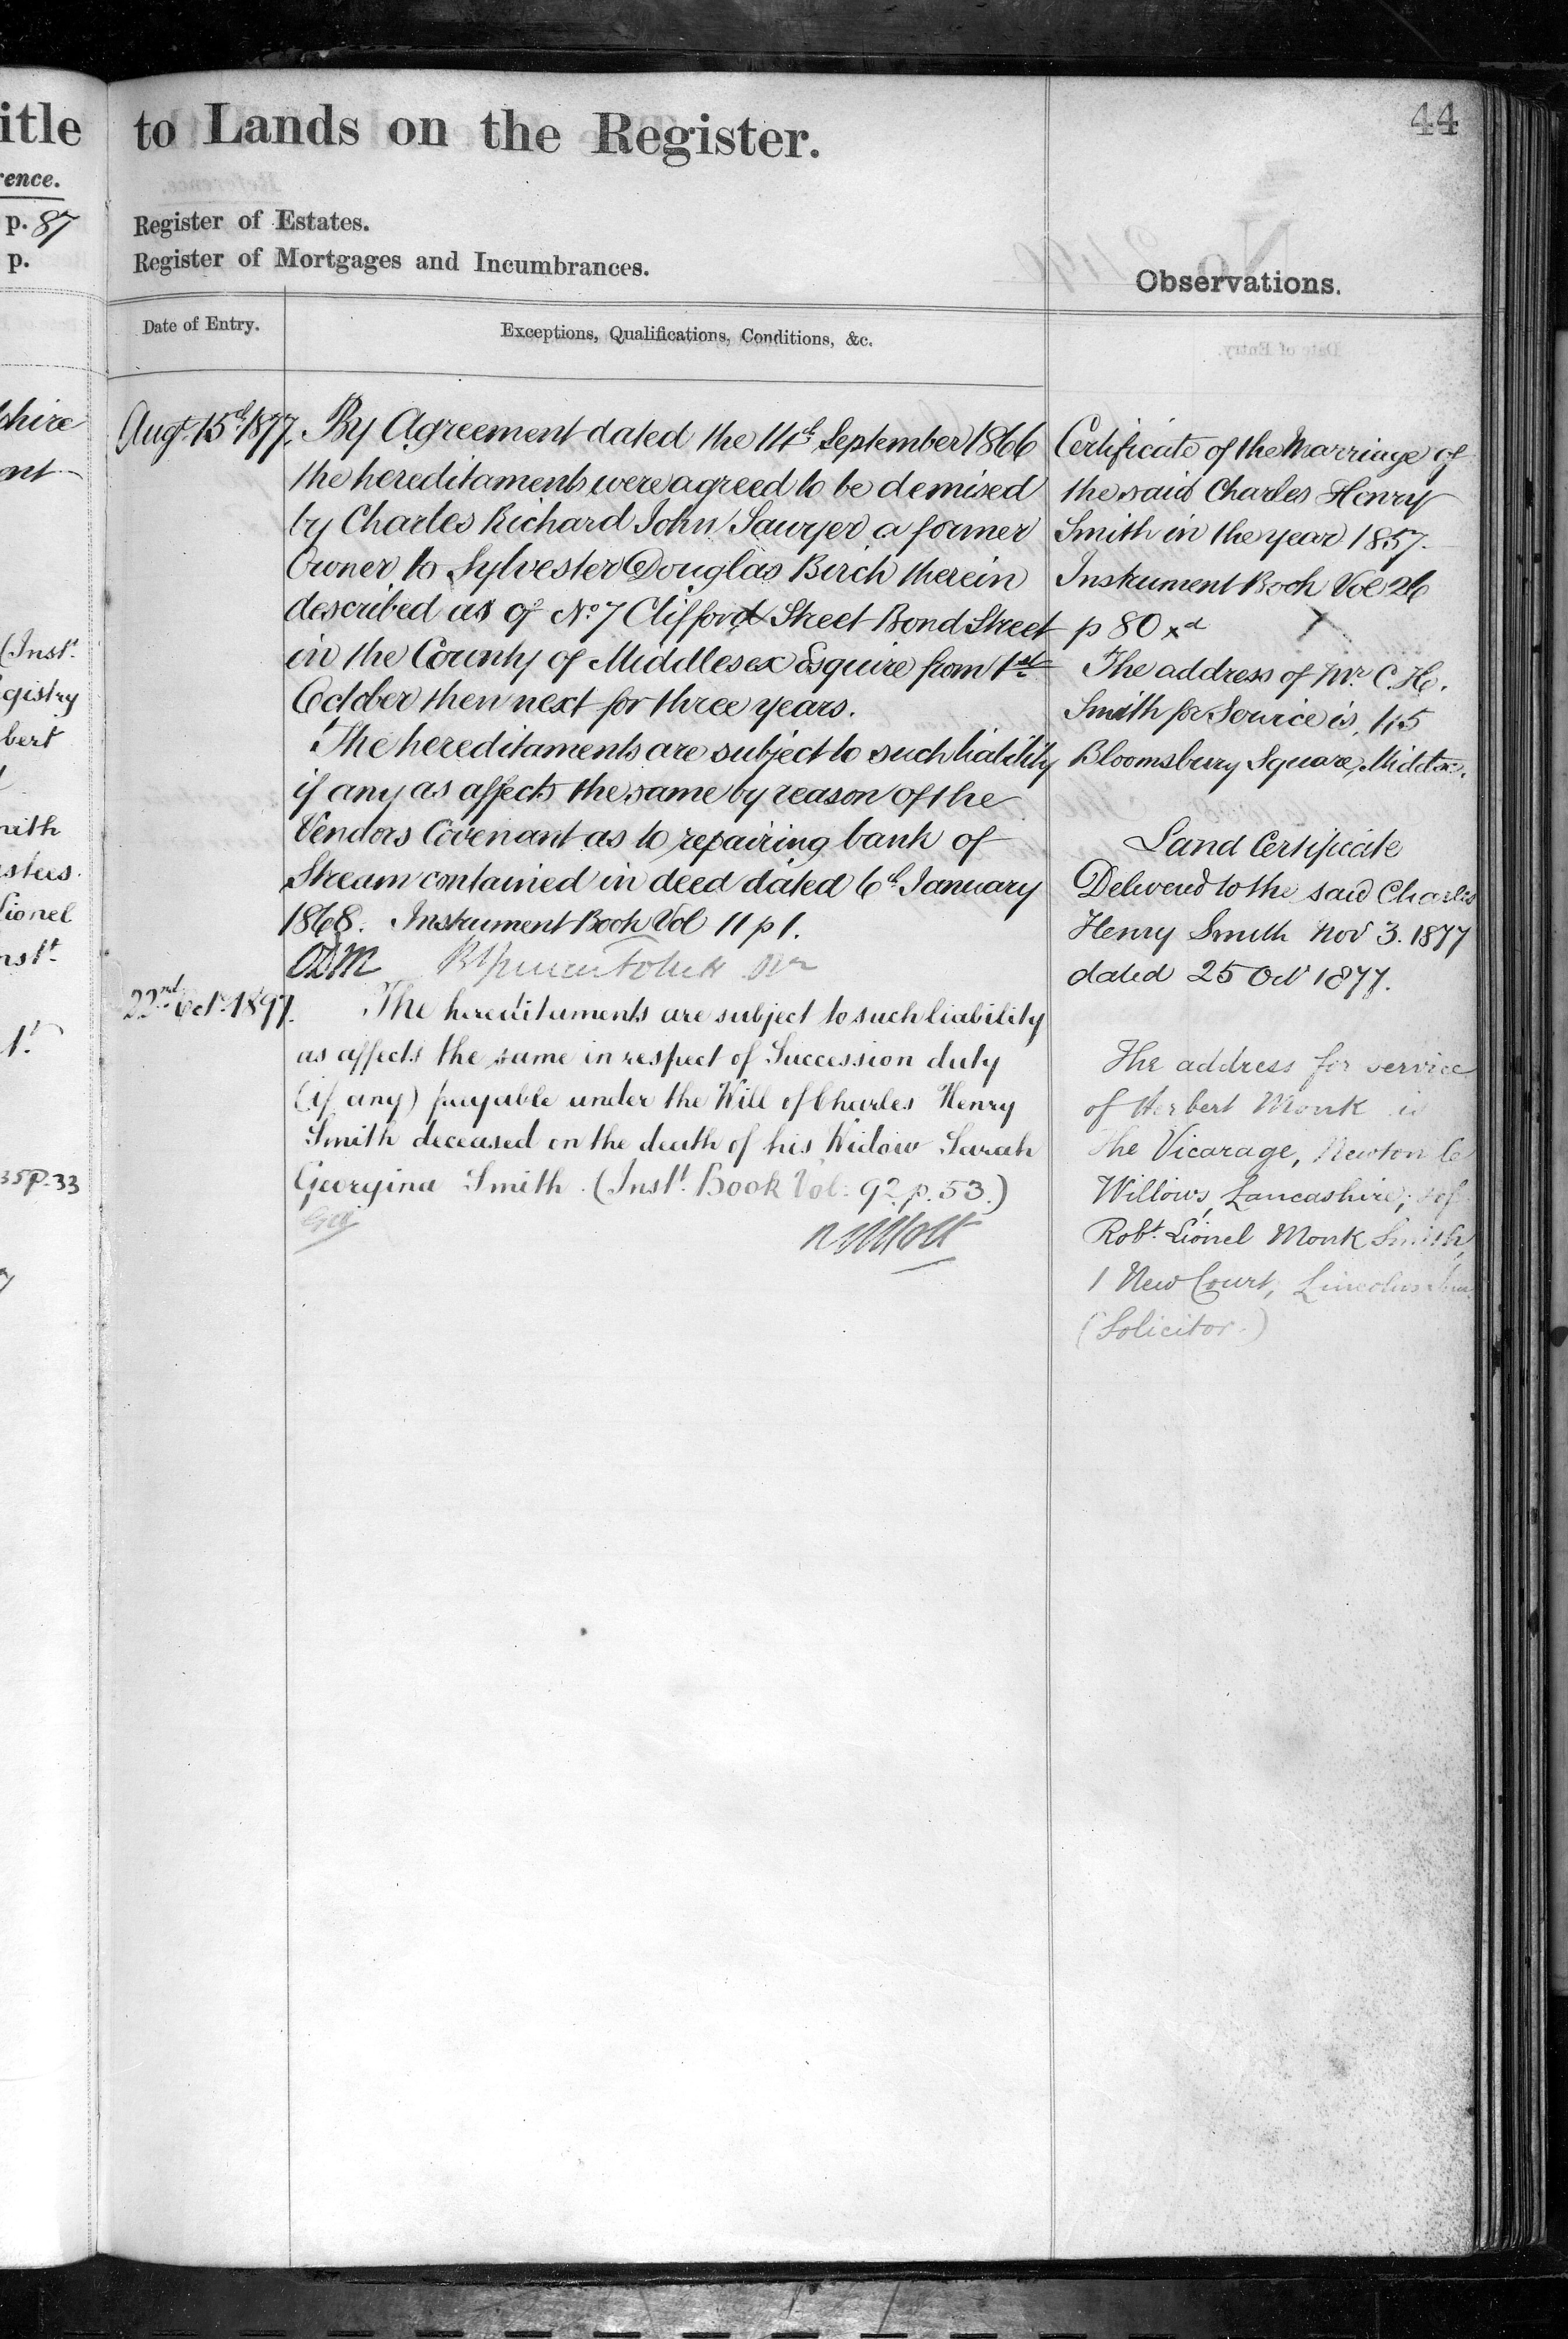 itle
rence.
p. 87
p.
shire
(Inst.
gistry
bert
stees.
Lionel
35 p. 33
to Lands on the Register.
44
Register of Estates.
Register of Mortgages and Incumbrances.
Observations.
Date of Entry.
Exceptions, Qualifications, Conditions, &c.
Augt. 15th 1877.
By Agreement dated the 14th September 1866
the hereditaments were agreed to be demised
by Charles Richard John Sawyer a former
Owner to Sylvester Douglas Birch therein
described as of No. 7 Clifford Street Bond Street
in the County of Middlesex Esquire from 1st
October then next for three years.
The hereditaments are subject to such liability
if any as affects the same by reason of the
Vendors Covenant as to repairing bank of
Stream contained in deed dated 6th January
1868. Instrument Book Vol 11 p 1.
22nd Oct. 1897.
The hereditaments are subject to such liability
as affects the same in respect of Succession duty
(if any) payable under the Will of Charles Henry
Smith deceased on the death of his Widow Sarah
Georgina Smith. (Instt. Book Vol: 92. p. 53.)
Certificate of the Marriage of
the said Charles Henry
Smith in the year 1857.
Instrument Book Vol 26
p 80 xd X
The address of Mr. C. H.
Smith for Service is, 45
Bloomsbury Square, Middx.
Land Certificate
Delivered to the said Charles
Henry Smith Nov 3. 1877
dated 25 Oct 1877.
The address for service
of Herbert Monk is
The Vicarage, Newton le
Willows, Lancashire; & of
Robt. Lionel Monk Smith,
1 New Court, Lincolns Inn.
(Solicitor.)